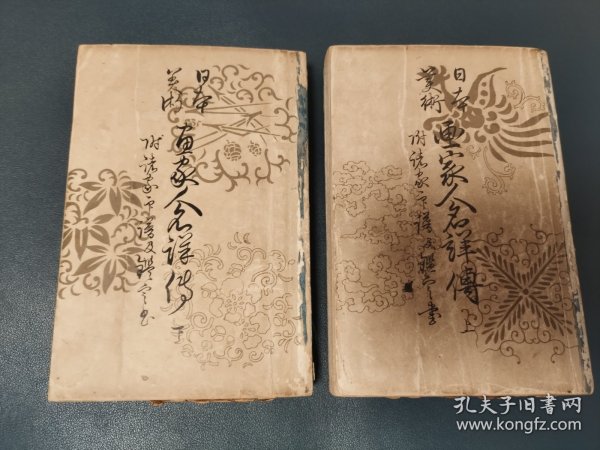 日本
美術
画家人名詳傳 上
附諸家印譜及鑑定書
日本
美術
画家人名詳傳 下
附諸家印譜及鑑定書
孔夫子旧书网
www.kongfz.com